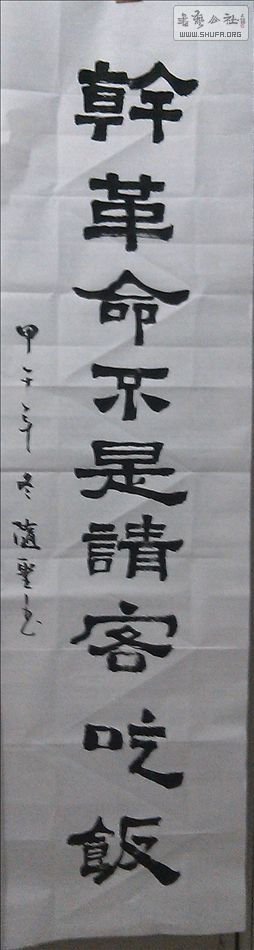 幹革命不是請客吃飯
甲午年冬隨聖書
书艺公社
WWW.SHUFA.ORG